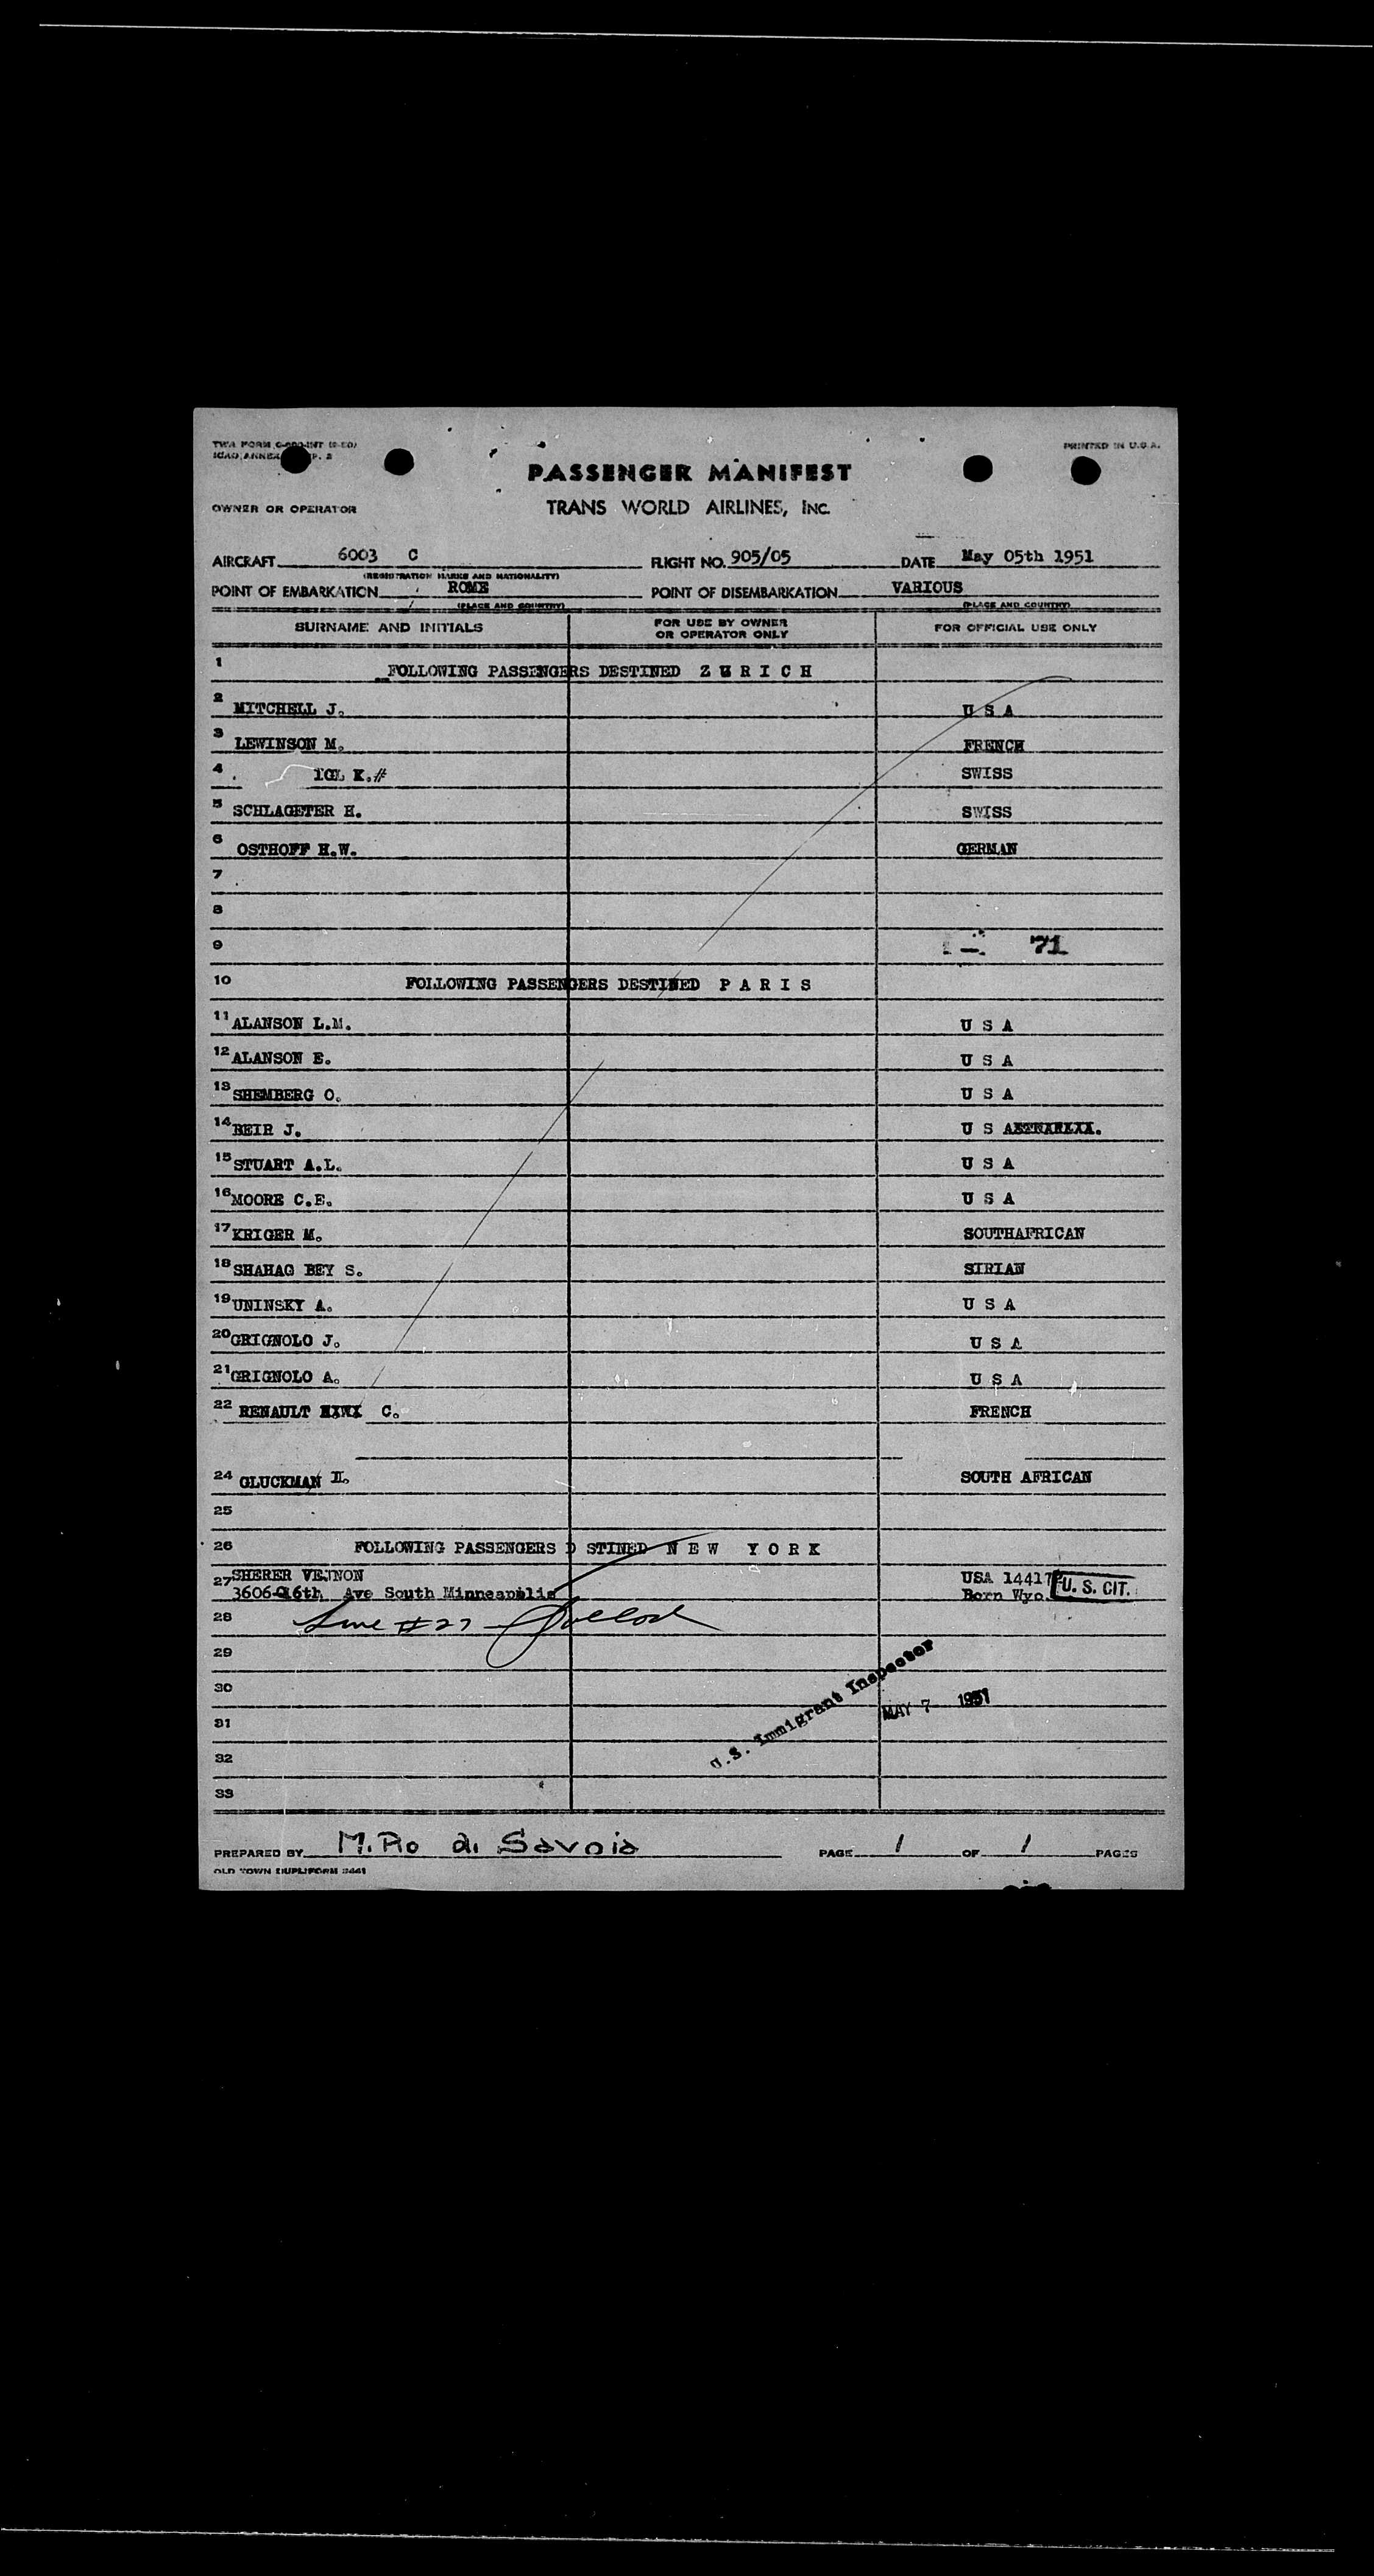 TWA FORM
ICAO ANNEX P. 2
PRINTED IN U.S.A.
PASSENGER MANIFEST
OWNER OR OPERATOR TRANS WORLD AIRLINES, INC.
AIRCRAFT 6003 C FLIGHT NO. 905/05 DATE May 05th 1951
(REGISTRATION MARKS AND NATIONALITY)
POINT OF EMBARKATION ROME POINT OF DISEMBARKATION VARIOUS
(PLACE AND COUNTRY) (PLACE AND COUNTRY)
SURNAME AND INITIALS FOR USE BY OWNER OR OPERATOR ONLY FOR OFFICIAL USE ONLY
1 FOLLOWING PASSENGERS DESTINED Z U R I C H
2 MITCHELL J. U S A
3 LEWINSON M. FRENCH
4 K.# SWISS
5 SCHLAGETER H. SWISS
6 OSTHOFF H.W. GERMAN
7
8
9 71
10 FOLLOWING PASSENGERS DESTINED P A R I S
11 ALANSON L.M. U S A
12 ALANSON E. U S A
13 SHEMBERG O. U S A
14 BEIR J. U S
15 STUART A.L. U S A
16 MOORE C.E. U S A
17 KRIGER M. SOUTHAFRICAN
18 SHAHAG BEY S. SIRIAN
19 UNINSKY A. U S A
20 GRIGNOLO J. U S A
21 GRIGNOLO A. U S A
22 RENAULT C. FRENCH
24 GLUCKMAN SOUTH AFRICAN
25
26 FOLLOWING PASSENGERS D STINED N E W Y O R K
27 SHERER VERNON USA 1441
3606-16th Ave South Minneapolis Born Wyo. U. S. CIT.
28 Line #27
29
30
U.S. Immigrant Inspector MAY 7 1951
31
32
33
PREPARED BY M. Pio di Savoia PAGE 1 OF 1 PAGES
OLD TOWN DUPLIFORM